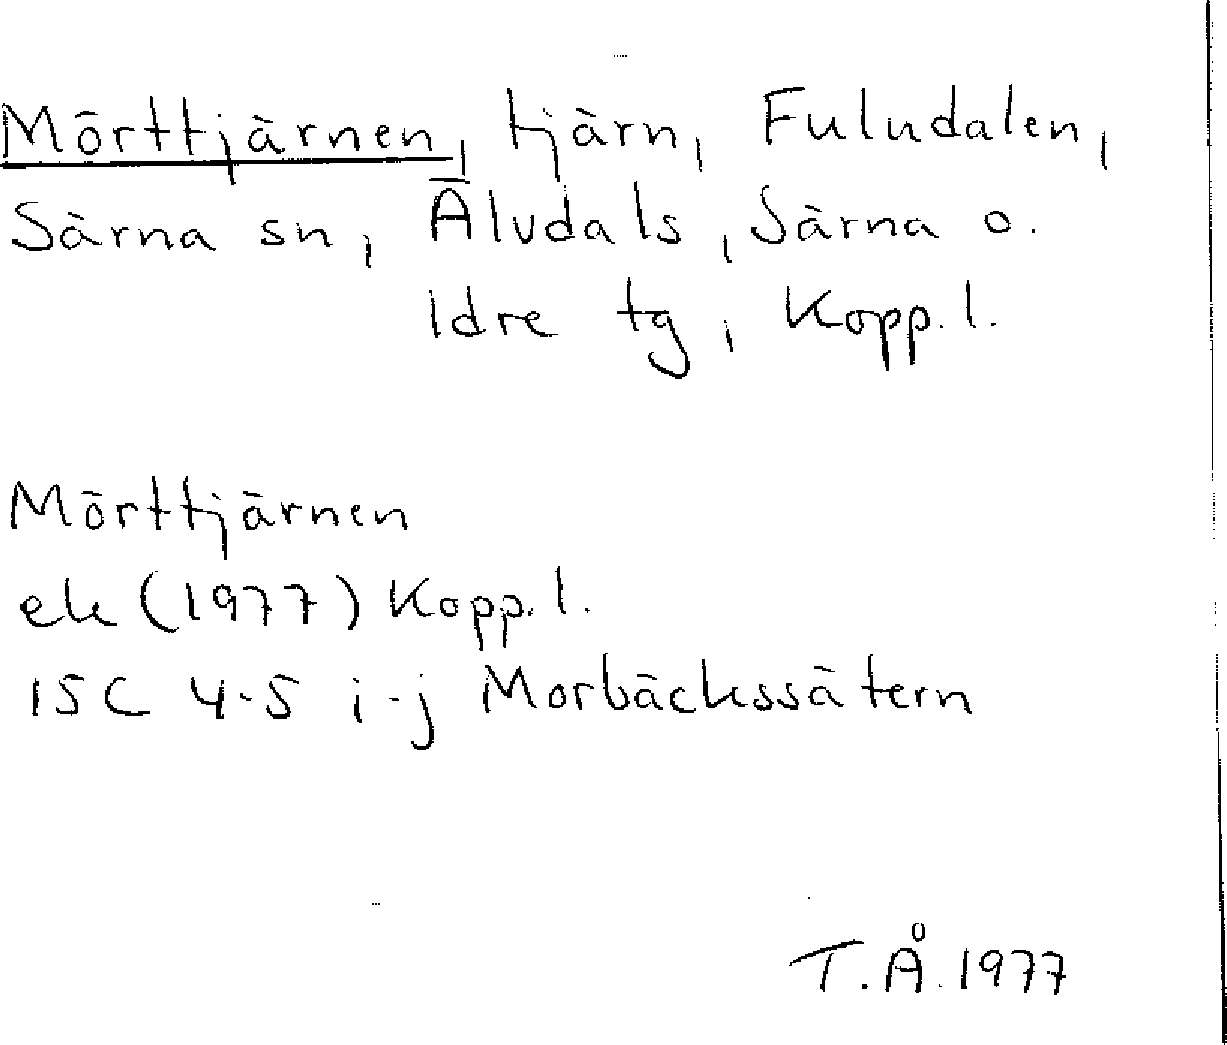 Mörttjärnen, tjärn, Fuludalen,
Särna sn, Älvdals, Särna o.
Idre tg, Kopp. l.
Mörttjärnen
ek (1977) Kopp. l.
15C 4-5 i-j Morbäckssätern
T.Å. 1977